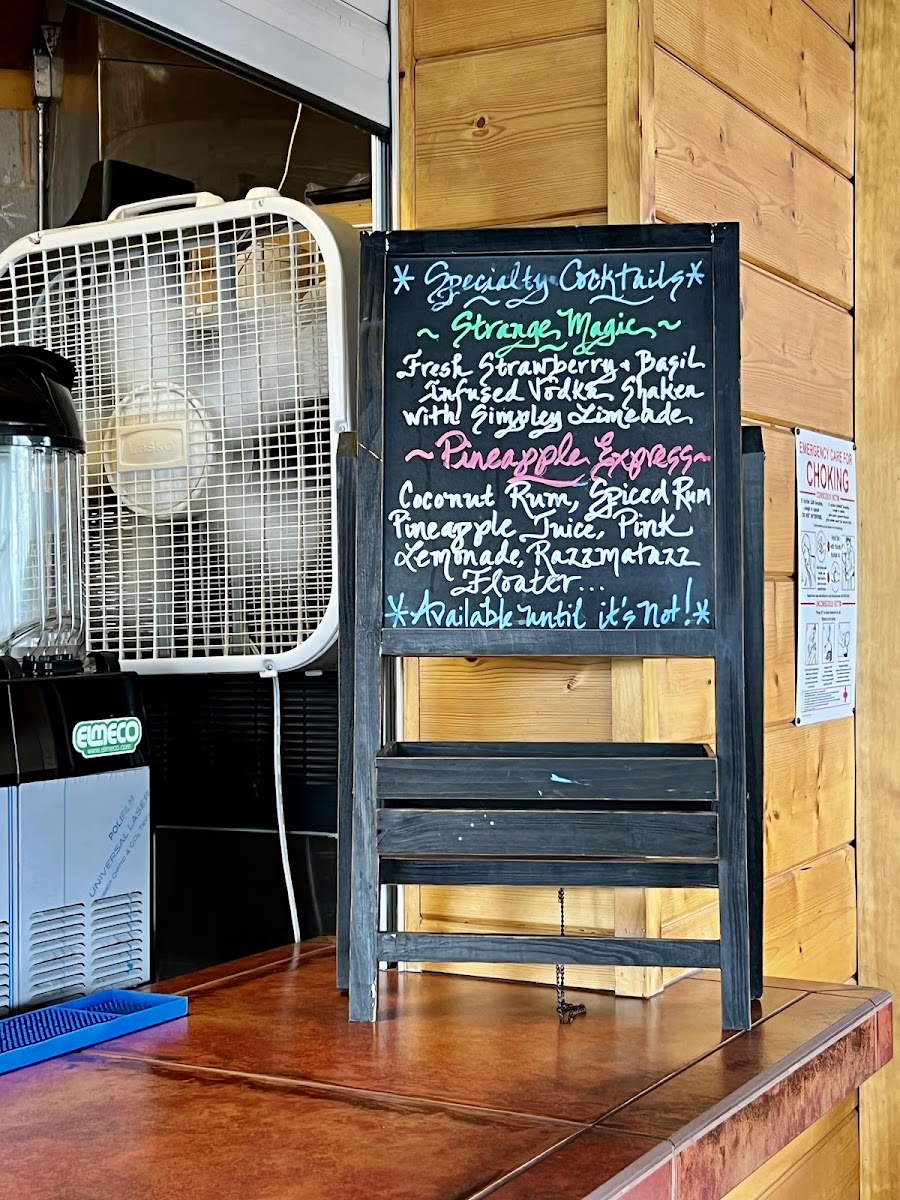 * Specialty Cocktails *
~ Strange Magic ~
Fresh Strawberry & Basil
Infused Vodka Shaken
with Simpley Limeade
~Pineapple Express~
Coconut Rum, Spiced Rum
Pineapple Juice, Pink
Lemonade, Razzmatazz
Floater...
*Available until it's not!*
Lasko
ELMECO
www.elmeco.com
POLIFILM
UNIVERSAL LASER
EMERGENCY CARE FOR
CHOKING
CONSCIOUS VICTIM
UNCONSCIOUS VICTIM